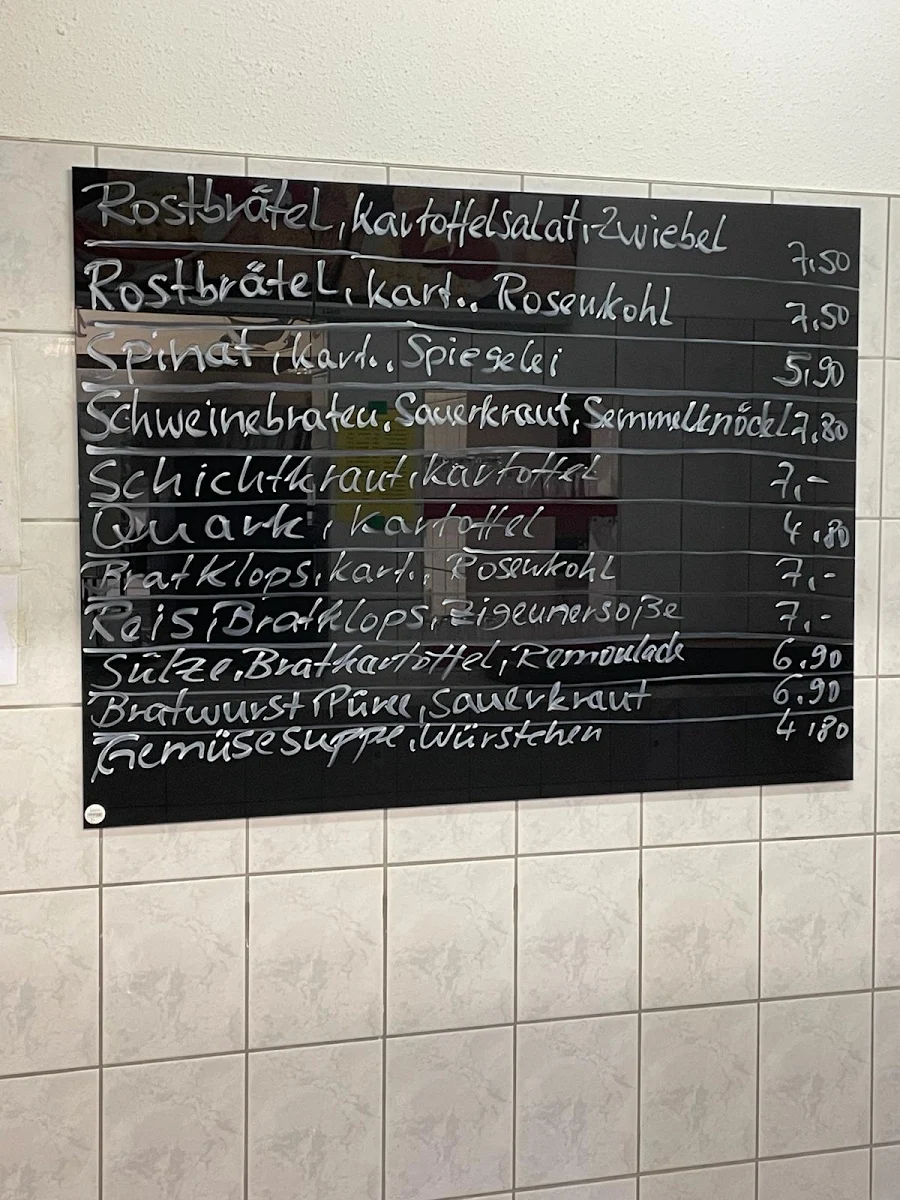 Rostbrätel, Kartoffelsalat, Zwiebel 7,50
Rostbrätel, Kart., Rosenkohl 7,50
Spinat, Kart., Spiegelei 5,90
Schweinebraten, Sauerkraut, Semmelknödel 7,80
Schichtkraut, Kartoffel 7,-
Quark, Kartoffel 4,80
Bratklops, Kart., Rosenkohl 7,-
Reis, Bratklops, Zigeunersoße 7,-
Sülze, Bratkartoffel, Remoulade 6,90
Bratwurst, Püree, Sauerkraut 6,90
Gemüsesuppe, Würstchen 4,80